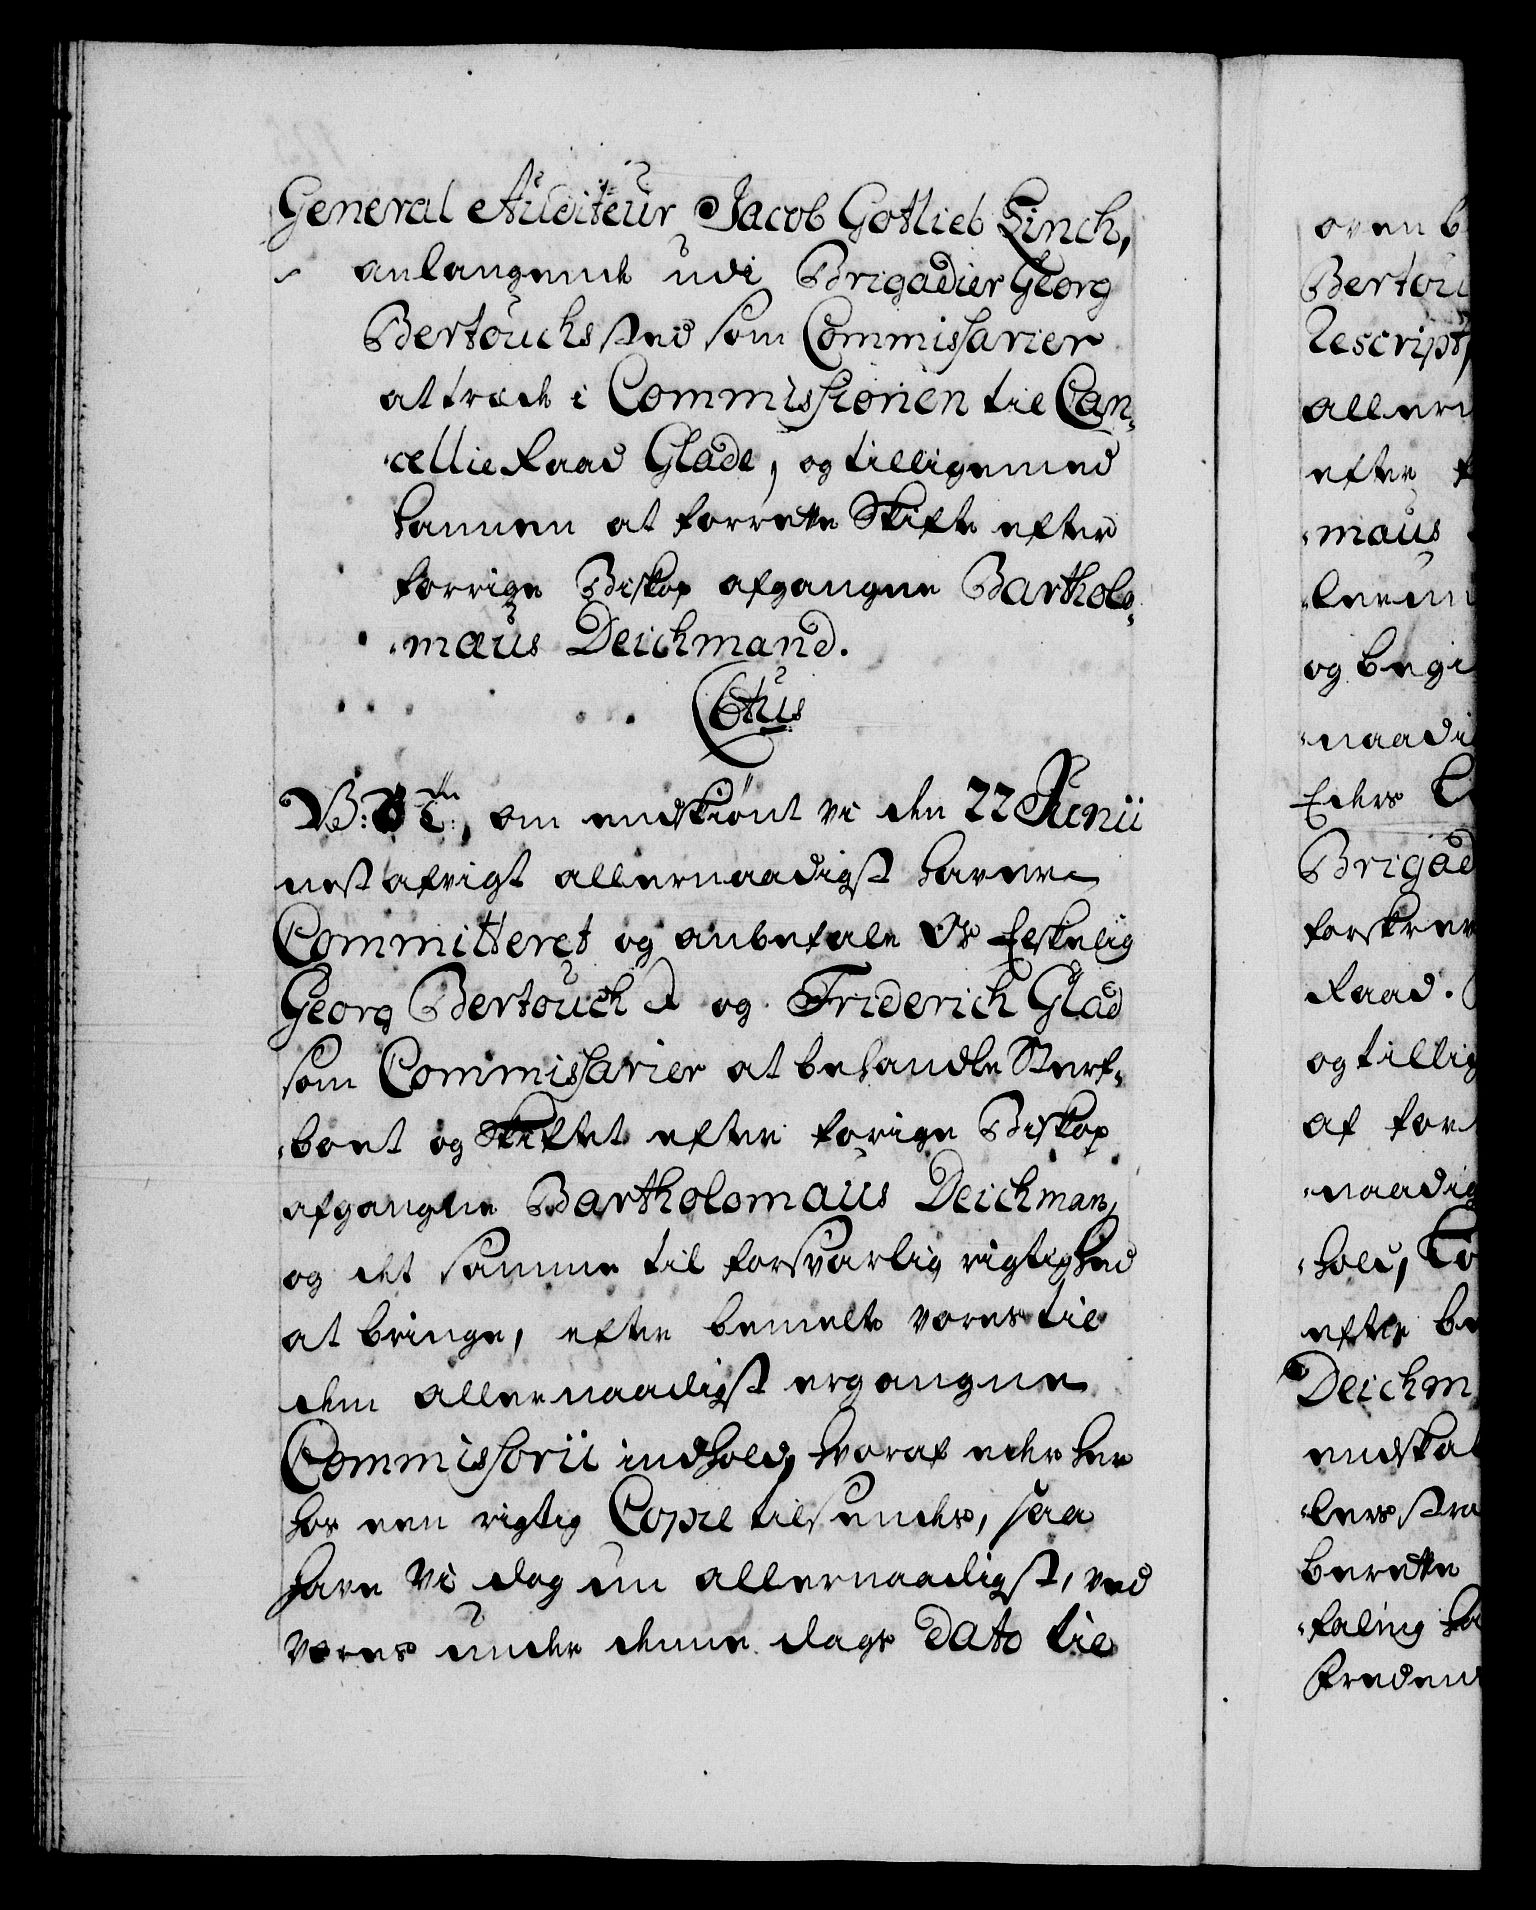 General Auditeur Jacob Gotlieb Linch,
anlangende udi Brigadier Georg
Bertouchs sted som Commissarier
at træde i Commissionen til Can¬
¬cellie Raad Glade, og tilligemed
hannem at forrette Skifte efter
forrige Biskop afgangne Bartholo¬
¬mæus Deichmand.
C6tus
V: G: T:, om endskiønt vi den 22 Junii
nest afvigt allernaadigst haver
Committeret og anbefale Os Elskelig
Georg Bertouch og Friderich Glad
som Commissarier at behandle Sterf¬
¬boet og Skiftet efter forige Biskop
afgangne Bartholomæus Deichman,
og det samme til forsvarlig rigtighed
at bringe, efter bemelte vores til
dem allernaadigst ergangne
Commissorii indhold, hvoraf eder her
hos een rigtig Copie tilsendes, saa
have Vi dog nu allernaadigst, ved
vores under denne dags Dato til
oven b
Bertou
Rescript,
allern
efter f
¬mæus
og begi
¬naadi
Eders
Brigad
forskrev
Raad.
og tillig
af for
¬naadig
¬hold,
efter be
Deichm
endskab
berette
¬faling ha
Fredens